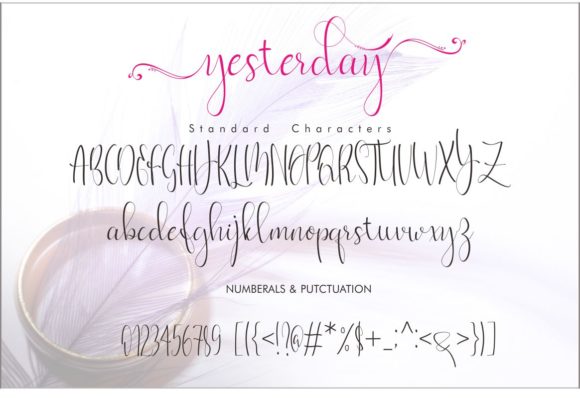 yesterday
Standard Characters
ABCDEFGHIJKLMNOPQRSTUVWXYZ
abcdefghijklmnopqrstuvwxyz
NUMBERALS & PUTCTUATION
0123456789 [({<!?@#*%$+_;^:<&>})]